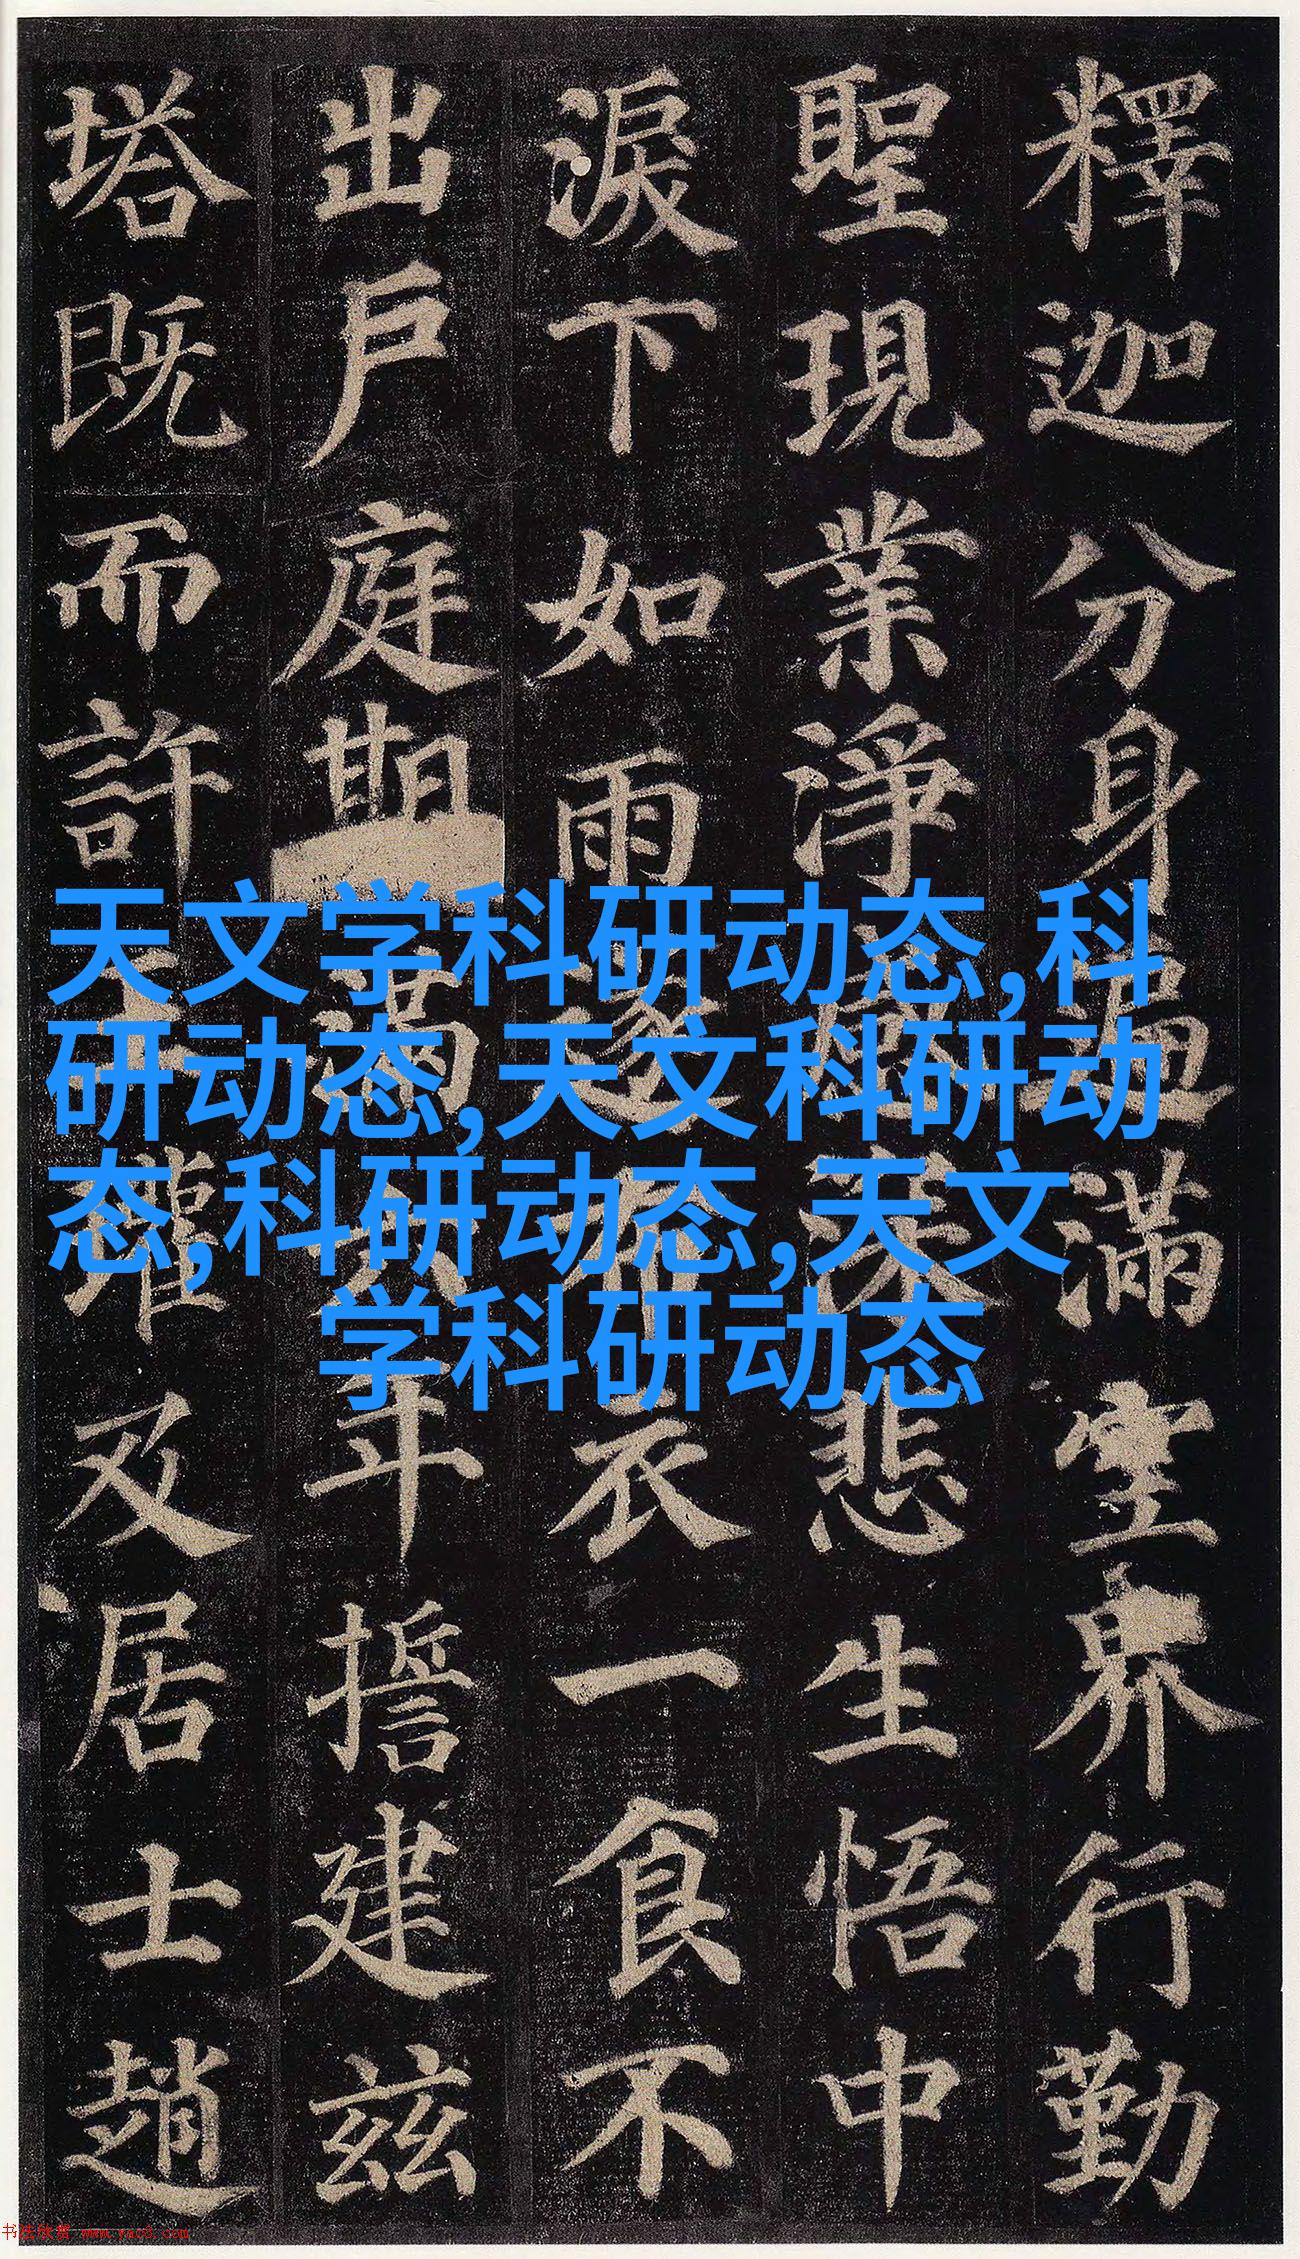 釋迦分身遍滿空界行勤
聖現業淨感深悲生悟中
淚下如雨遂布衣一食不
出戶庭期滿六年誓建茲
塔既而許王瓘及居士趙
天文学科研动态,科
研动态,天文科研动
态,科研动态,天文
学科研动态
书法欣赏 www.yac8.com